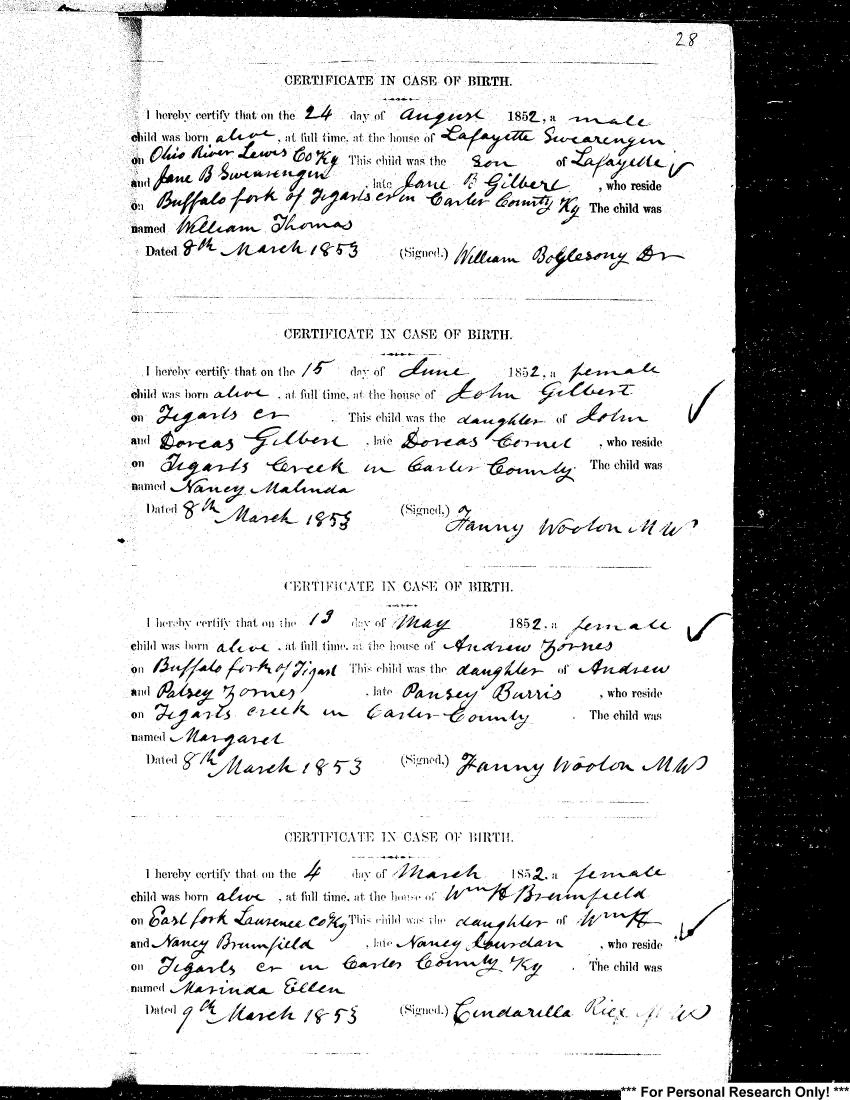 28
CERTIFICATE IN CASE OF BIRTH.
I hereby certify that on the 24 day of August 1852, a male
child was born alive, at full time, at the house of Lafayette Swearengen
on Ohio River Lewis Co Ky This child was the son of Lafayette
and Jane B Swearengen, late Jane B Gilbert, who reside
on Buffalo fork of Tigarts cr in Carter County Ky The child was
named William Thomas
Dated 8th March 1853 (Signed.) William Dr
CERTIFICATE IN CASE OF BIRTH.
I hereby certify that on the 15 day of June 1852, a female
child was born alive, at full time, at the house of John Gilbert
on Tigarts cr . This child was the daughter of John
and Dorcas Gilbert, late Dorcas Cornet, who reside
on Tigarts Creek in Carter County. The child was
named Nancy Malinda
Dated 8th March 1853 (Signed.) Fanny Wooton M W
CERTIFICATE IN CASE OF BIRTH.
I hereby certify that on the 13 day of May 1852, a female
child was born alive, at full time, at the house of Andrew Zornes
on Buffalo fork of Tigart This child was the daughter of Andrew
and Patsey Zornes, late Pansey Burris, who reside
on Tigarts creek in Carter County . The child was
named Margaret
Dated 8th March 1853 (Signed.) Fanny Wooton M W
CERTIFICATE IN CASE OF BIRTH.
I hereby certify that on the 4 day of March 1852, a female
child was born alive, at full time, at the house of Wm H Brumfield
on East fork Laurence Co Ky This child was the daughter of Wm H
and Nancy Brumfield, late Nancy Jourdan, who reside
on Tigarts cr in Carter County Ky . The child was
named Marinda Ellen
Dated 9th March 1853 (Signed.) Cindarilla Rice M W
*** For Personal Research Only! ***